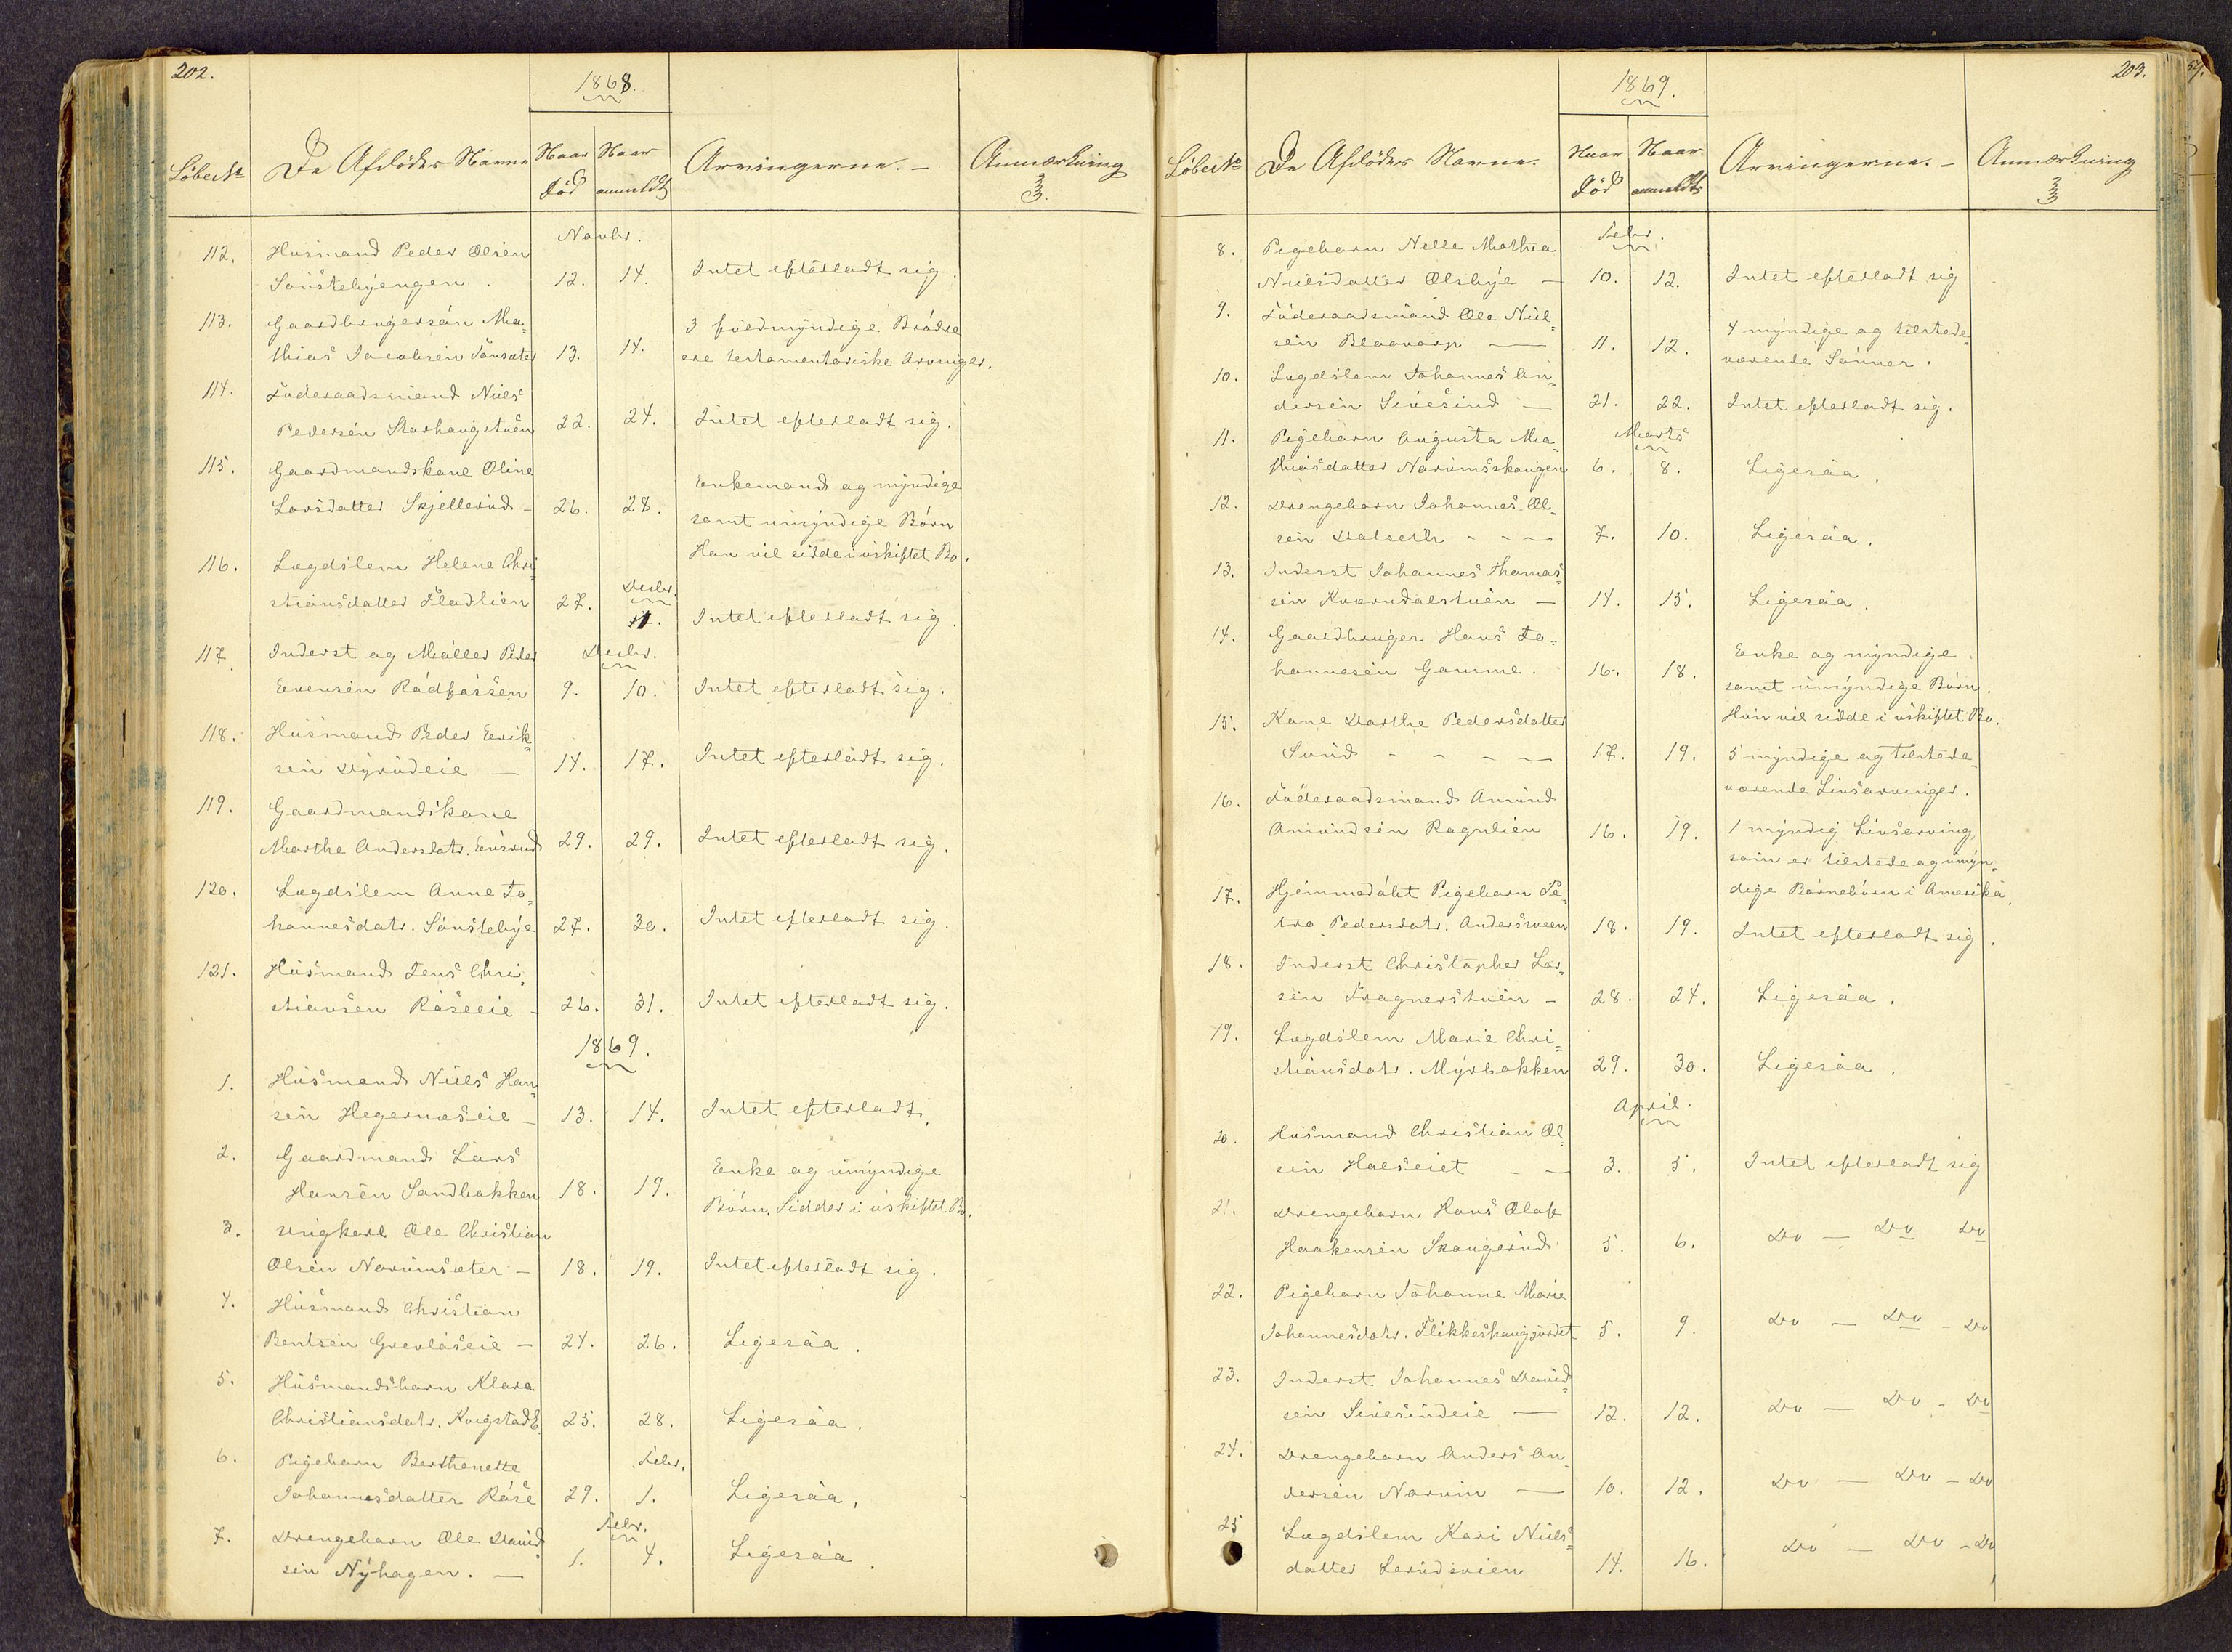 202.
1868.
Löbe No De Afdödes Navne Naar Död Naar anmeldt Arvingerne. - Anmærkning
Novbr.
112. Husmand Peder Olsen
Sönstebyengen. 12. 14. Intet efterladt sig.
113. Gaardbrugersön Ma-
thias Jacobsen Tönsæter 13. 14. 3 fuldmyndige Brödre
ere testamentariske Arvinger.
114. Föderaadsmand Niels
Pedersen Skarhaugstuen 22. 24. Intet efterladt sig.
115. Gaardmandskone Oline
Larsdatter Skjellerud - 26. 28. Enkemand og myndige
samt umyndige Börn
Han vil sidde i uskiftet Bo.
116. Lægdslem Helene Chri-
stiansdatter Fladlien 27. Decbr. 1. Intet efterladt sig.
117. Inderst og Möller Peder Decbr.
Evensen Rödfossen 9. 10. Intet efterladt sig.
118. Husmand Peder Erik-
sen Dyrudeie — 14. 17. Intet efterladt sig.
119. Gaardmandskone
Marthe Andersdatr. Evisrud 29. 29. Intet efterladt sig.
120. Lægdslem Anne Jo-
hannesdatr. Sönstebye 27. 30. Intet efterladt sig.
121. Husmand Jens Chri-
stiansen Röseeie - 26. 31. Intet efterladt sig.
1869.
1. Husmand Niels Han-
sen Hegernæseie - 13. 14. Intet efterladt.
2. Gaardmand Lars
Hansen Sandbakken 18. 19. Enke og umyndige
Börn. Sidder i uskiftet Bo.
3. Ungkarl Ole Christian
Olsen Narumsæter - 18. 19. Intet efterladt sig.
4. Husmand Christian
Bentsen Grevlöseie - 24. 26. Ligesaa.
5. Husmandsbarn Klara
Christiansdatr. Kvigstad E. 25. 28. Ligesaa.
6. Pigebarn Berthenette Febr.
Johannesdatter Röse 29. 1. Ligesaa.
7. Drengebarn Ole David- Febr.
sen Nyhagen. — 1. 4. Ligesaa.
203.
1869.
Löbe No De Afdödes Navne. Naar Död Naar anmeldt Arvingerne. - Anmærkning
Febr.
8. Pigebarn Nelle Mathea
Nielsdatter Olsbye — 10. 12. Intet efterladt sig
9. Föderaadsmand Ole Niel-
sen Blaavarp — 11. 12. 4 myndige og tilstede-
værende Sönner.
10. Lægdslem Johannes An-
dersen Sivesind — 21. 22. Intet efterladt sig.
11. Pigebarn Augusta Ma- Marts
thiasdatter Narumskaugen 6. 8. Ligesaa.
12. Drengebarn Johannes Ol-
sen Dalseth - - — 7. 10. Ligesaa.
13. Inderst Johannes Thomas-
sen Kværndalstuen — 14. 15. Ligesaa.
14. Gaardbruger Hans Jo-
hannesen Gamme. 16. 18. Enke og myndige
samt umyndige Börn.
Hun vil sidde i uskiftet Bo.
15. Kone Marthe Pedersdatter
Sund - - - — 17. 19. 5 myndige og tilstede-
værende Livsarvinger.
16. Föderaadsmand Amund
Amundsen Ragnlien 16. 19. 1 myndig Livsarving,
som er tilstede og umyn-
dige Börnebörn i Amerika.
17. Hjemmedöbt Pigebarn Pe-
tra Pedersdatr. Andersveen 18. 19. Intet efterladt sig.
18. Inderst Christopher Lar-
sen Fragnerstuen - 28. 24. Ligesaa.
19. Lægdslem Marie Chri-
stiansdatr. Myrbakken 29. 30. Ligesaa.
April.
20. Husmand Christian Ol-
sen Halseiet - — 3. 5. Intet efterladt sig
21. Drengebarn Hans Olaf
Haakensen Skaugerud 5. 6. Do — Do Do
22. Pigebarn Johanne Marie
Johannesdatr. Flikkeshaugjordet 5. 9. Do — Do - Do
23. Inderst Johannes David-
sen Sivesindeie — 12. 12. Do — Do - Do
24. Drengebarn Anders An-
dersen Narum — 10. 12. Do — Do - Do
25 Lægdslem Kari Niels-
datter Lerudsveen 14. 16. Do — Do - Do